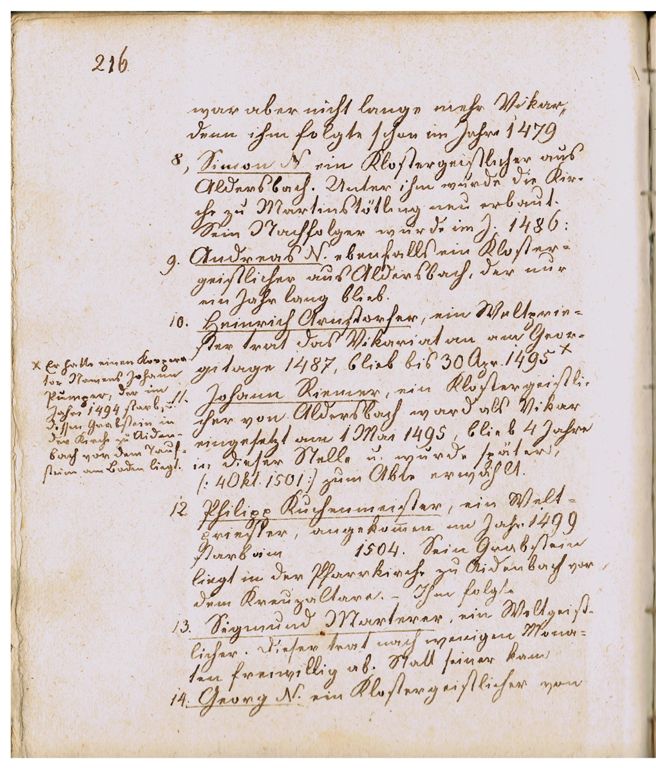 216
war aber nicht lange mehr Vikar,
denn ihm folgte schon im Jahre 1479
8, Simon N ein Klostergeistlicher aus
Aldersbach. Unter ihm wurde die Kir-
che zu Martinstötling neu erbaut.
Sein Nachfolger wurde im J. 1486:
9. Andreas N. ebenfalls ein Kloster-
geistlicher aus Aldersbach, der nur
ein Jahr lang blieb.
10. Heinrich Arnstorfer, ein Weltprie-
ster trat das Vikariat an am Geor-
gitage 1487, blieb bis 30 Apr. 1495 ×
× Er hatte einen Koopera
tor Namens Johann
Pumper, der im
Jahre 1494 starb, u.
dessen Grabstein in
der Kirche zu Aiden-
bach vor dem Tauf-
stein am Boden liegt.
11. Johann Riemer, ein Klostergeistli-
cher von Aldersbach ward als Vikar
eingesetzt am 1 Mai 1495, blieb 4 Jahre
in dieser Stelle u. wurde später,
(: 4 Okt. 1501 :) zum Abte erwählt.
12 Philipp Kuchenmeister, ein Welt-
priester, angekom̄en im Jahr 1499
starb am 1504. Sein Grabstein
liegt in der Pfarrkirche zu Aidenbach vor
dem Kreuzaltare. – Ihm folgte
13. Sigmund Marterer, ein Weltgeist-
licher. Dieser trat nach wenigen Mona-
ten freiwillig ab. Statt seiner kam
14. Georg N. ein Klostergeistlicher von